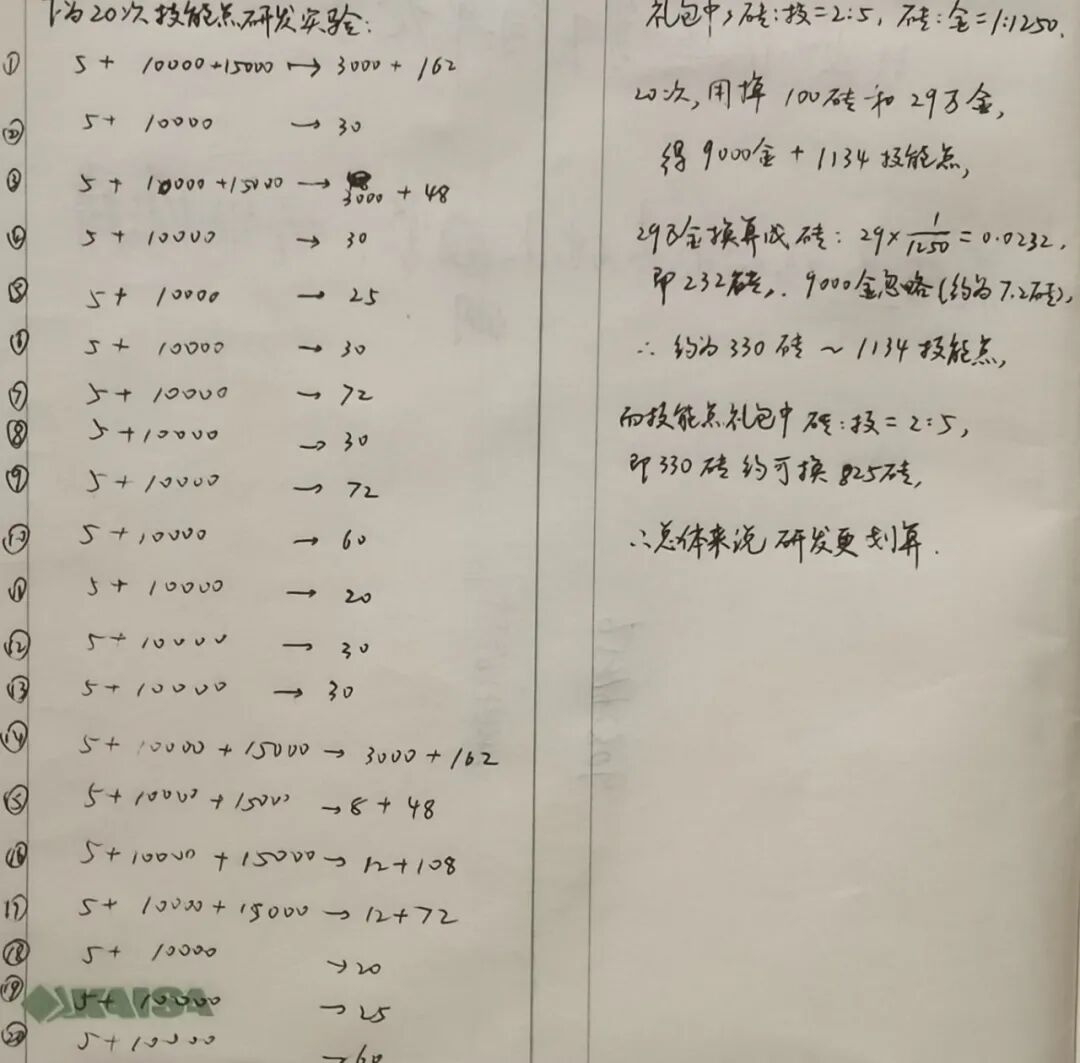 下为20次技能点研发实验:
① 5+ 10000+15000 → 3000+162
② 5+ 10000 → 30
③ 5+ 10000+15000 → 3000+48
④ 5+ 10000 → 30
⑤ 5+ 10000 → 25
⑥ 5+ 10000 → 30
⑦ 5+ 10000 → 72
⑧ 5+10000 → 30
⑨ 5+10000 → 72
⑩ 5+10000 → 60
⑪ 5+ 10000 → 20
⑫ 5+ 10000 → 30
⑬ 5+10000 → 30
⑭ 5+ 10000+15000 → 3000+162
⑮ 5+10000+15000 → 8+48
⑯ 5+10000+15000 → 12+108
⑰ 5+ 10000+15000 → 12+72
⑱ 5+ 10000 → 20
⑲ 5+ 10000 → 25
⑳ 5+10000 → 60
KAISA
礼包中, 砖:技=2:5, 砖:金=1:1250.
20次,用掉100砖和29万金,
得9000金+1134技能点,
29万金换算成砖: 29×1/1250=0.0232,
即232砖, 9000金忽略(约为7.2砖),
∴约为330砖~1134技能点,
而技能点礼包中 砖:技=2:5,
即330砖约可换825砖,
∴总体来说研发更划算.